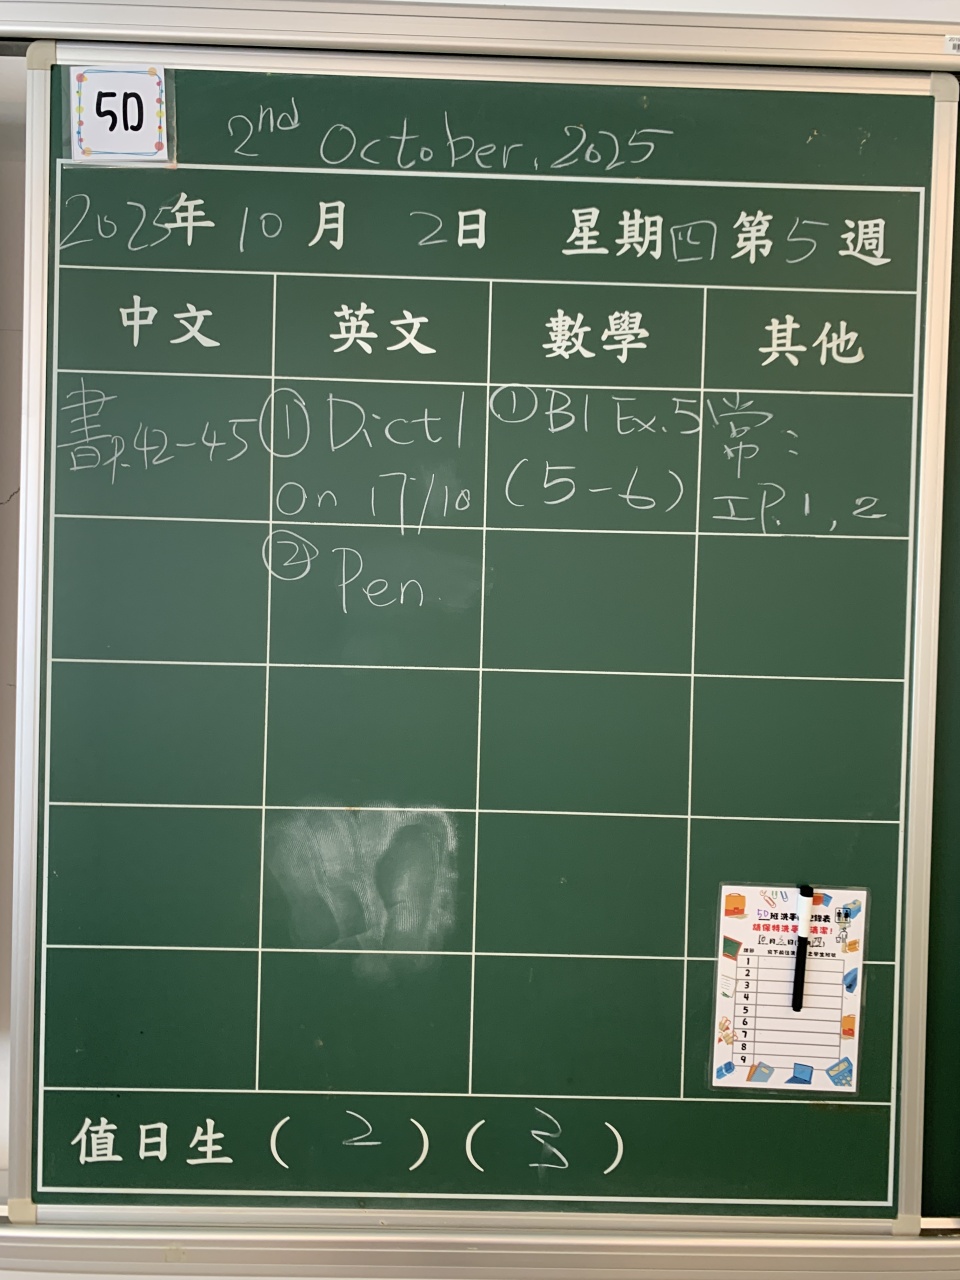 5D
2nd October, 2025
2025年 10 月 2日 星期四 第5週
中文 英文 數學 其他
書P.42-45
① Dict 1
on 17/10
② Pen.
① B1 Ex.5
(5-6)
常:
工P.1, 2
5D班洗手
請保持洗手 清潔!
10月2日
1
2
3
4
5
6
7
8
9
值日生 ( 2 ) ( 3 )